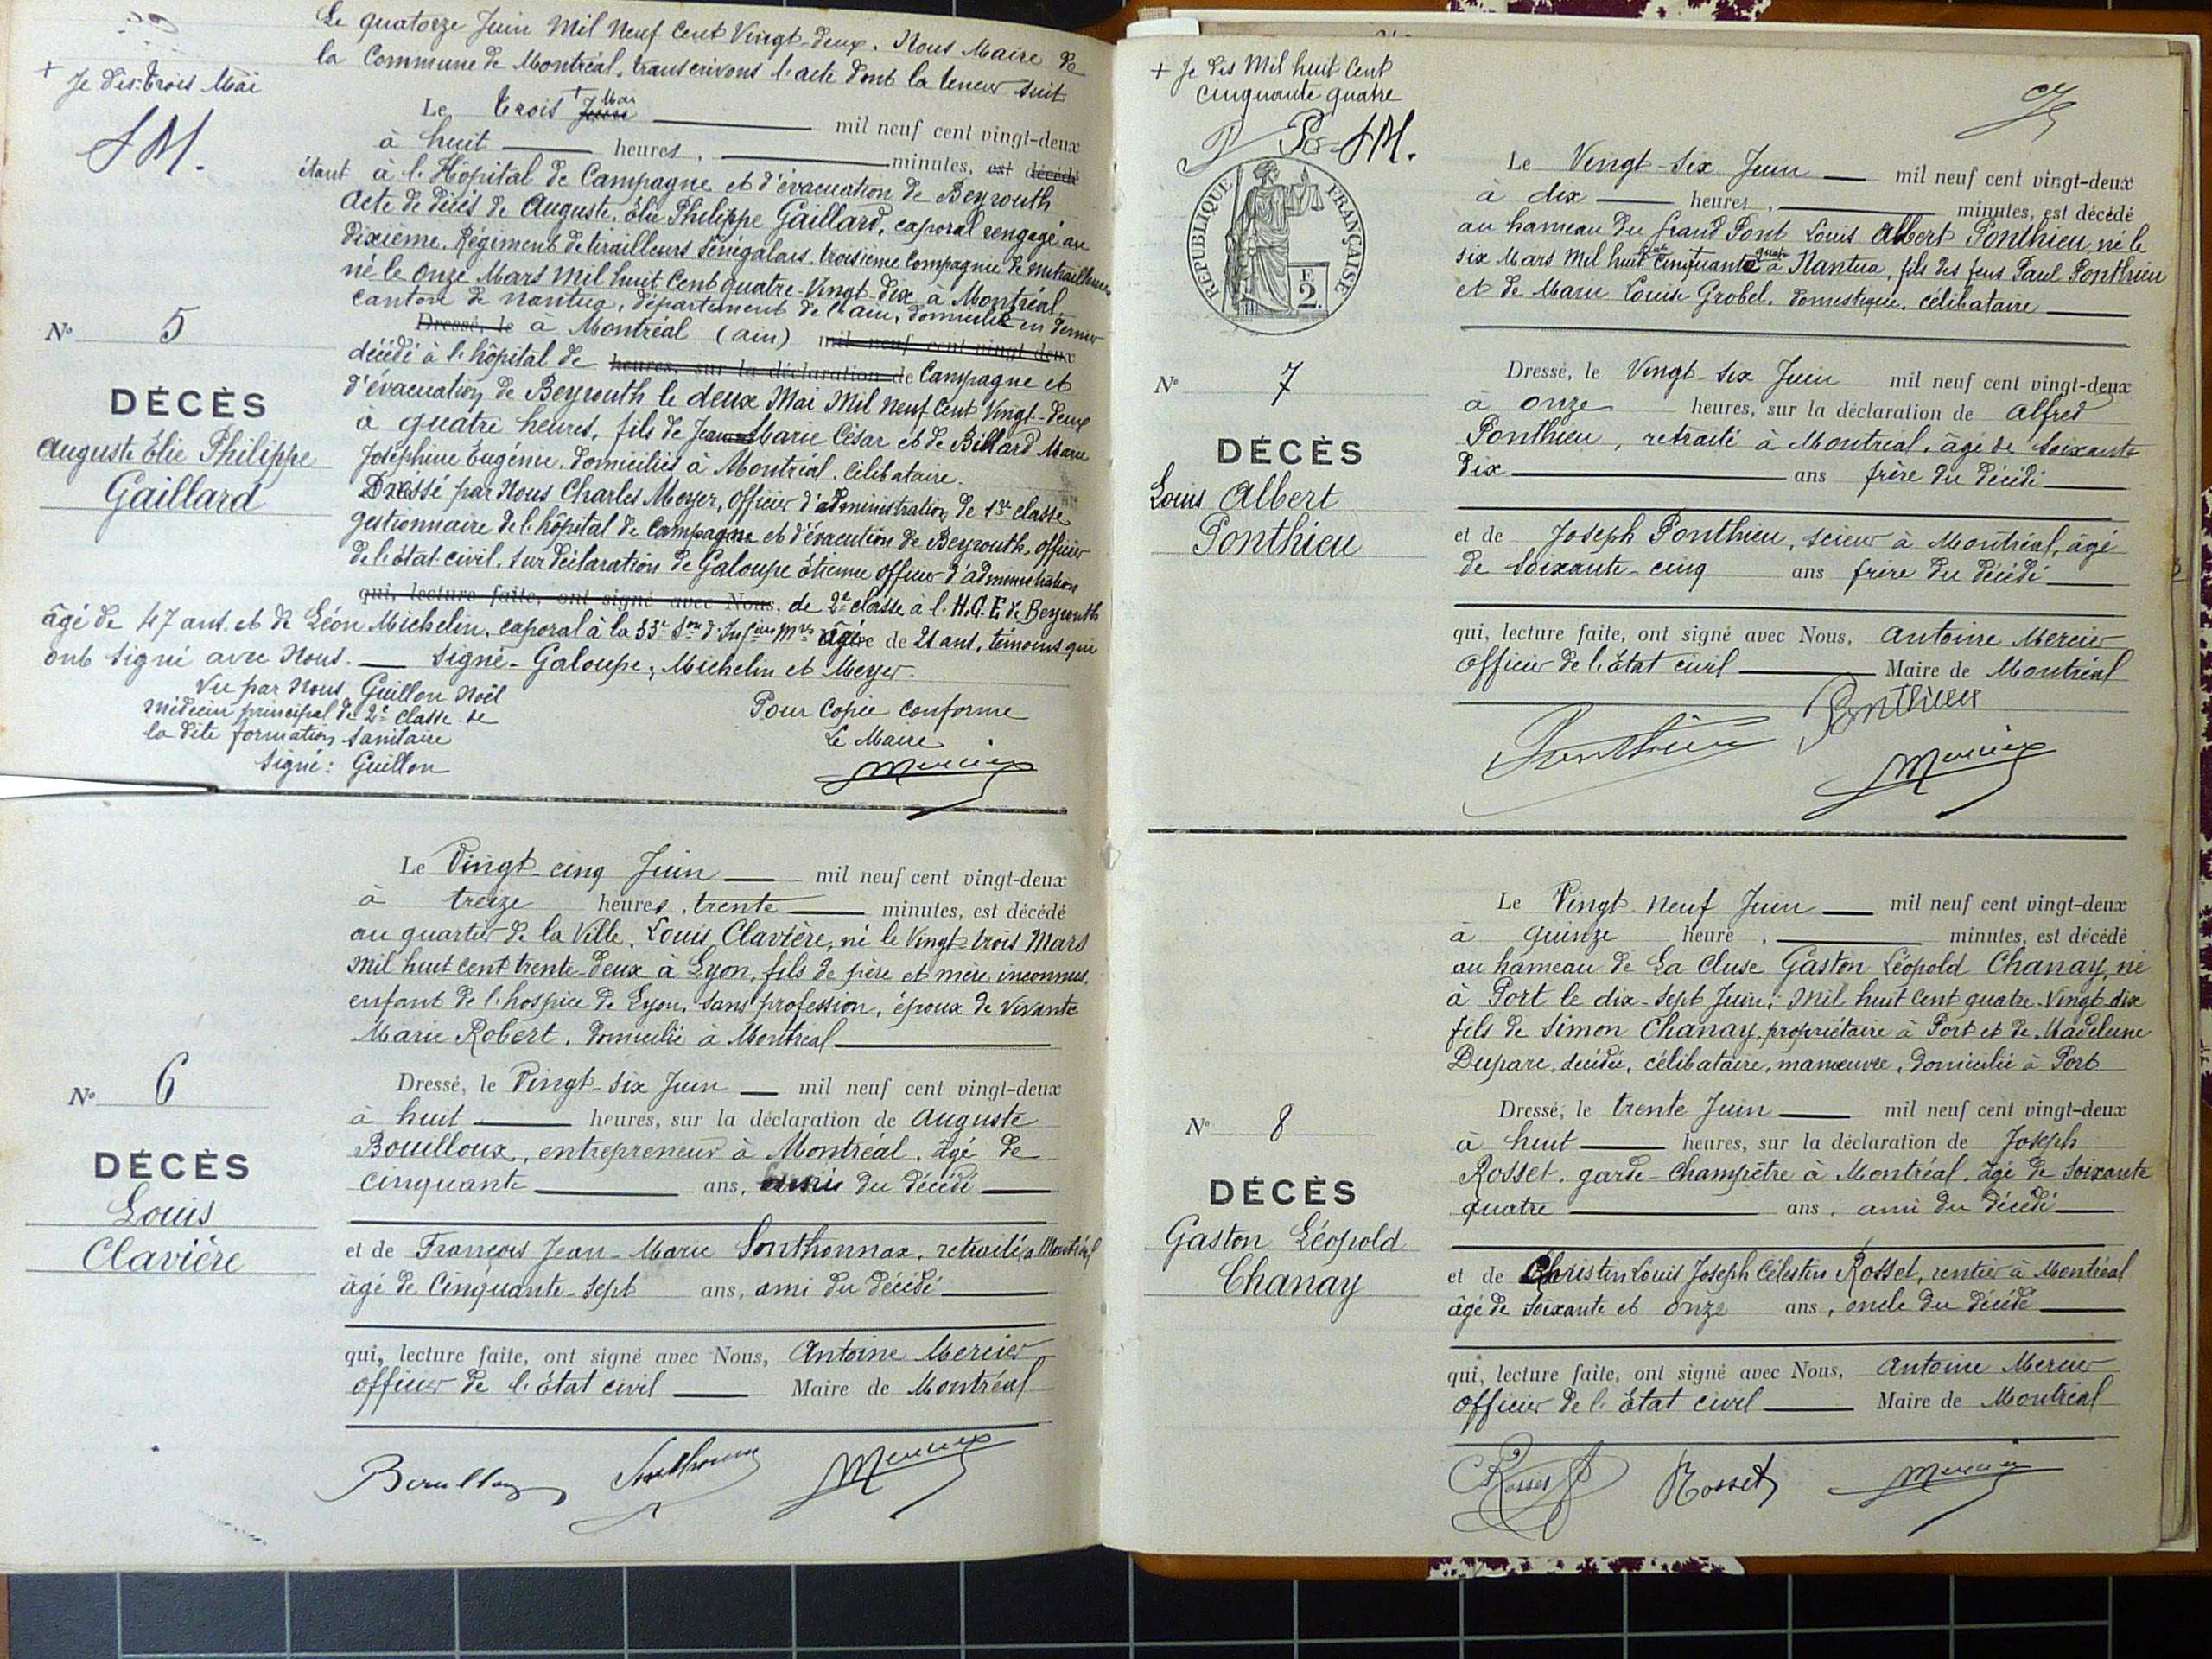 Le quatorze Juin Mil Neuf Cent Vingt-deux. Nous Maire de
la Commune de Montréal, transcrivons l'acte dont la teneur suit
+ Je dis: trois Mai
Le trois + Juin Mai mil neuf cent vingt-deux
J M.
à huit heures, minutes, est décédé
étant à l'Hôpital de Campagne et d'évacuation de Beyrouth
Acte de décès de Auguste, Élie Philippe Gaillard, caporal rengagé au
dixième Régiment de tirailleurs Sénégalais, troisième Compagnie de mitrailleuses
né le onze Mars Mil huit Cent quatre-Vingt dix à Montréal
canton de nantua, département de l'ain, domicilié en dernier
Dressé, le à Montréal (ain) mil neuf cent vingt-deux
décédé à l'hôpital de heures, sur la déclaration de Campagne et
d'évacuation de Beyrouth le deux Mai Mil Neuf Cent Vingt-deux
à quatre heures, fils de Jean Marie César et de Billard Marie
Joséphine Eugénie, domiciliés à Montréal. Célibataire.
Dressé par Nous Charles Meyer, Officier d'administration de 1re classe
gestionnaire de l'hôpital de Campagne et d'évacution de Beyrouth, officier
de l'état-civil. Sur déclaration de Galoupe Étienne officier d'administration
qui, lecture faite, ont signé avec Nous, de 2e classe à l'H.C.E de Beyrouth
âgé de 47 ans. et de Léon Michelin, caporal à la 33e Son d'Infiers Mres âgé de 21 ans, témoins qui
ont signé avec Nous. Signé - Galoupe, Michelin et Meyer.
Vu par Nous Guillon Noël
médecin principal de 2e classe de
la dite formation Sanitaire
Signé: Guillon
Pour Copie Conforme
Le Maire
Mercier
No 5
DÉCÈS
Auguste Élie Philippe
Gaillard
Le Vingt-cinq Juin mil neuf cent vingt-deux
à treize heures, trente minutes, est décédé
au quartier de la Ville, Louis Clavière, né le Vingt-trois Mars
Mil huit Cent trente-deux à Lyon, fils de père et mère inconnus,
enfant de l'hospice de Lyon, sans profession, époux de Vivante
Marie Robert, domicilié à Montréal
Dressé, le Vingt-Six Juin mil neuf cent vingt-deux
à huit heures, sur la déclaration de Auguste
Bouilloux, entrepreneur à Montréal, âgé de
cinquante ans, ami du décédé
et de François Jean-Marie Sonthonnax, retraité à Montréal
âgé de Cinquante-sept ans, ami du décédé
qui, lecture faite, ont signé avec Nous, Antoine Mercier
officier de l'état civil Maire de Montréal
Bouilloux Sonthonnax Mercier
No 6
DÉCÈS
Louis
Clavière
+ Je dis Mil huit Cent
cinquante quatre
P Po J M.
RÉPUBLIQUE FRANÇAISE
F
2.
Le Vingt-Six Juin mil neuf cent vingt-deux
à dix heures, minutes, est décédé
au hameau du Grand Pont Louis Albert Ponthieu né le
six Mars Mil huit Cent cinquante quatre à Nantua, fils des feus Paul Ponthieu
et de Marie Louise Grobel, domestique, célibataire
Dressé, le Vingt-Six Juin mil neuf cent vingt-deux
à onze heures, sur la déclaration de Alfred
Ponthieu, retraité à Montréal, âgé de soixante
dix ans frère du décédé
et de Joseph Ponthieu, scieur à Montréal, âgé
de Soixante-cinq ans frère du décédé
qui, lecture faite, ont signé avec Nous, Antoine Mercier
Officier de l'état civil Maire de Montréal
Ponthieu Ponthieu
Mercier
No 7
DÉCÈS
Louis Albert
Ponthieu
Le Vingt-Neuf Juin mil neuf cent vingt-deux
à quinze heure, minutes, est décédé
au hameau de La Cluse Gaston Léopold Chanay, né
à Port le dix-Sept Juin; Mil huit Cent quatre-Vingt-dix
fils de Simon Chanay, propriétaire à Port et de Madeleine
Dupare, décédée, célibataire, manœuvre, domicilié à Port
Dressé, le trente Juin mil neuf cent vingt-deux
à huit heures, sur la déclaration de Joseph
Rosset, garde-Champêtre à Montréal, âgé de Soixante
quatre ans, ami du décédé
et de Christin Louis Joseph Célestin Rosset, rentier à Montréal
âgé de Soixante et onze ans, oncle du décédé
qui, lecture faite, ont signé avec Nous, Antoine Mercier
Officier de l'État civil Maire de Montréal
Rosset Rosset Mercier
No 8
DÉCÈS
Gaston Léopold
Chanay